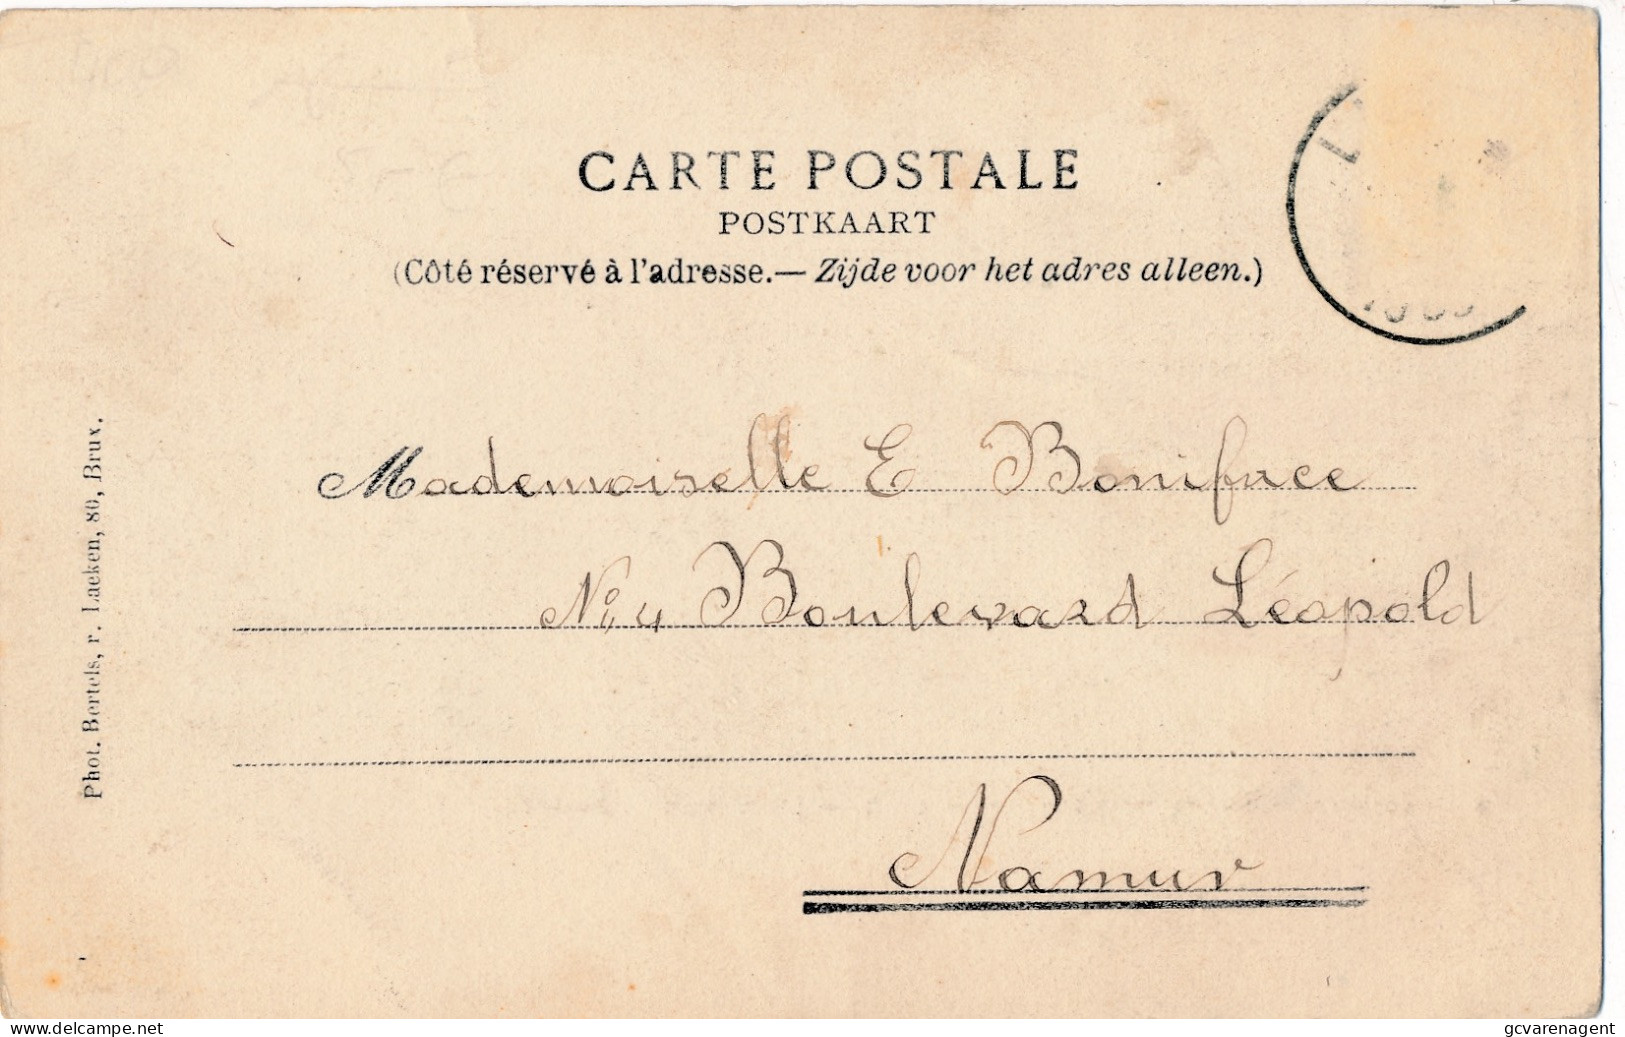 CARTE POSTALE
POSTKAART
(Côté réservé à l'adresse.— Zijde voor het adres alleen.)
Mademoiselle E Boniface
No 4 Boulevard Léopold
Namur
Phot. Bertels, r. Laeken, 80, Brux.
www.delcampe.net
gcvarenagent